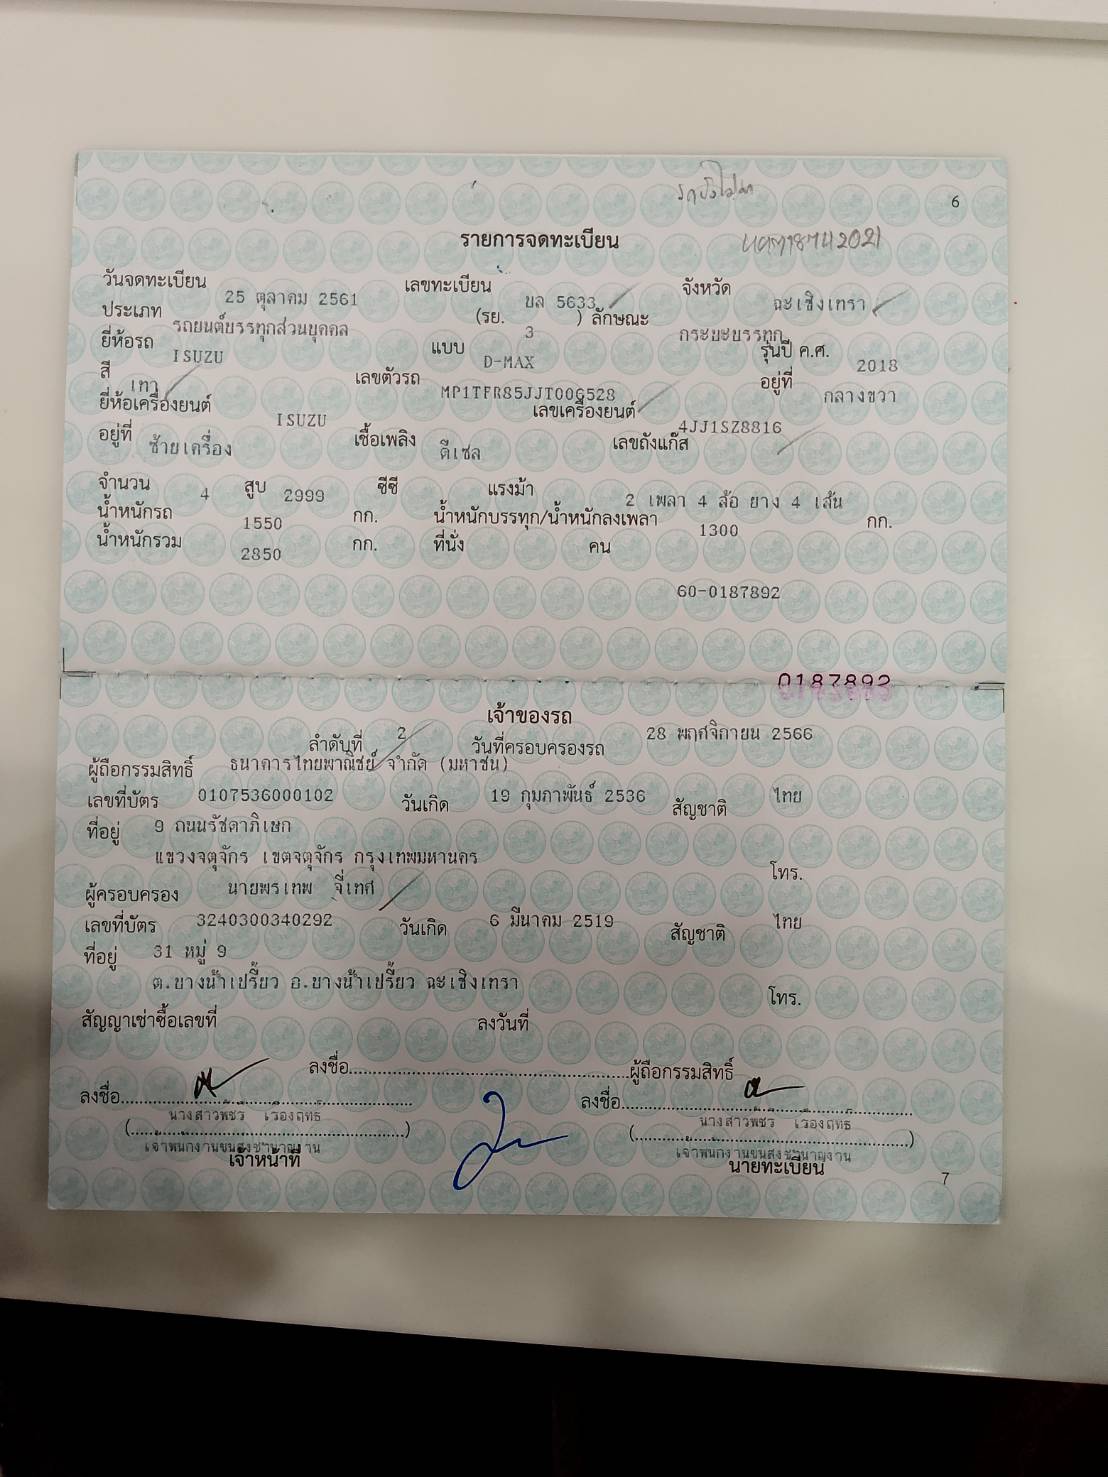 6
รายการจดทะเบียน
วันจดทะเบียน 25 ตุลาคม 2561 เลขทะเบียน ขล 5633 จังหวัด ฉะเชิงเทรา
ประเภท รถยนต์บรรทุกส่วนบุคคล (รย. 3 ) ลักษณะ กระบะบรรทุก
ยี่ห้อรถ ISUZU แบบ D-MAX รุ่นปี ค.ศ. 2018
สี เทา เลขตัวรถ MP1TFR85JJT006528 อยู่ที่ กลางขวา
ยี่ห้อเครื่องยนต์ ISUZU เลขเครื่องยนต์ 4JJ1SZ8816
อยู่ที่ ซ้ายเครื่อง เชื้อเพลิง ดีเซล เลขถังแก๊ส
จำนวน 4 สูบ 2999 ซีซี แรงม้า 2 เพลา 4 ล้อ ยาง 4 เส้น
น้ำหนักรถ 1550 กก. น้ำหนักบรรทุก/น้ำหนักลงเพลา 1300 กก.
น้ำหนักรวม 2850 กก. ที่นั่ง คน
60-0187892
0187892
เจ้าของรถ
ลำดับที่ 2 วันที่ครอบครองรถ 28 พฤศจิกายน 2566
ผู้ถือกรรมสิทธิ์ ธนาคารไทยพาณิชย์ จำกัด (มหาชน)
เลขที่บัตร 0107536000102 วันเกิด 19 กุมภาพันธ์ 2536 สัญชาติ ไทย
ที่อยู่ 9 ถนนรัชดาภิเษก
แขวงจตุจักร เขตจตุจักร กรุงเทพมหานคร โทร.
ผู้ครอบครอง นายพรเทพ จี่เทศ
เลขที่บัตร 3240300340292 วันเกิด 6 มีนาคม 2519 สัญชาติ ไทย
ที่อยู่ 31 หมู่ 9
ต.บางน้ำเปรี้ยว อ.บางน้ำเปรี้ยว ฉะเชิงเทรา โทร.
สัญญาเช่าซื้อเลขที่ ลงวันที่
ลงชื่อ ผู้ถือกรรมสิทธิ์
ลงชื่อ ลงชื่อ
(นางสาวพัชรี เรืองฤทธิ์) (นางสาวพัชรี เรืองฤทธิ์)
เจ้าพนักงานขนส่งชำนาญงาน เจ้าพนักงานขนส่งชำนาญงาน
เจ้าหน้าที่ นายทะเบียน
7